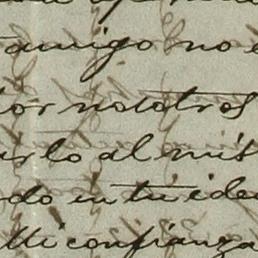 amigo no e
por nosotros
arlo al mis
do en tu idea
Mi confianza